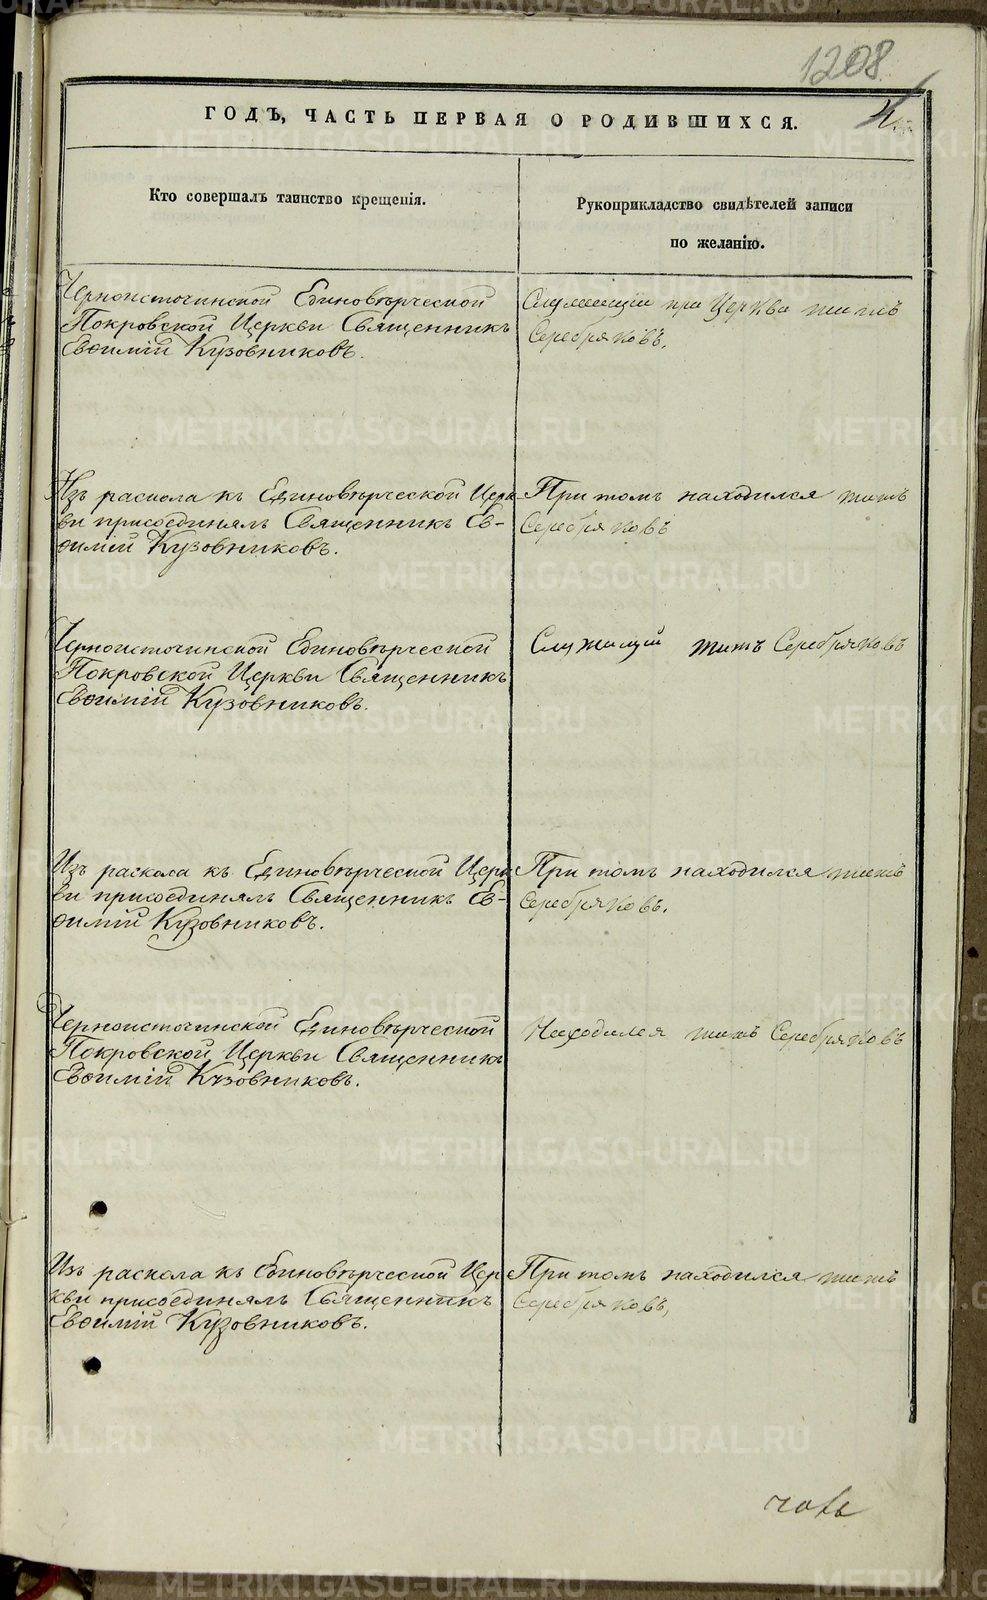 1208
ГОДЪ, ЧАСТЬ ПЕРВАЯ О РОДИВШИХСЯ.
Кто совершалъ таинство крещенія.
Рукоприкладство свидѣтелей записи
по желанію.
Черноисточинской Единовѣрческой
Покровской Церкви Священникъ
Евѳимій Кузовниковъ.
Служащій при Церкви титъ
Серебряковъ.
Изъ раскола къ Единовѣрческой Церк-
ви присоединялъ Священникъ Ев-
ѳимій Кузовниковъ.
При томъ находился титъ
Серебряковъ
Черноисточинской Единовѣрческой
Покровской Церкви Священникъ
Евѳимій Кузовниковъ.
Служащій титъ Серебряковъ
Изъ раскола къ Единовѣрческой Церк-
ви присоединялъ Священникъ Ев-
ѳимій Кузовниковъ.
При томъ находился титъ
Серебряковъ.
Черноисточинской Единовѣрческой
Покровской Церкви Священникъ
Евѳимій Кузовниковъ.
Находился титъ Серебряковъ
Изъ раскола къ Единовѣрческой Цер-
кви присоединялъ Священникъ
Евѳимій Кузовниковъ.
При томъ находился титъ
Серебряковъ,
METRIKI.GASO-URAL.RU